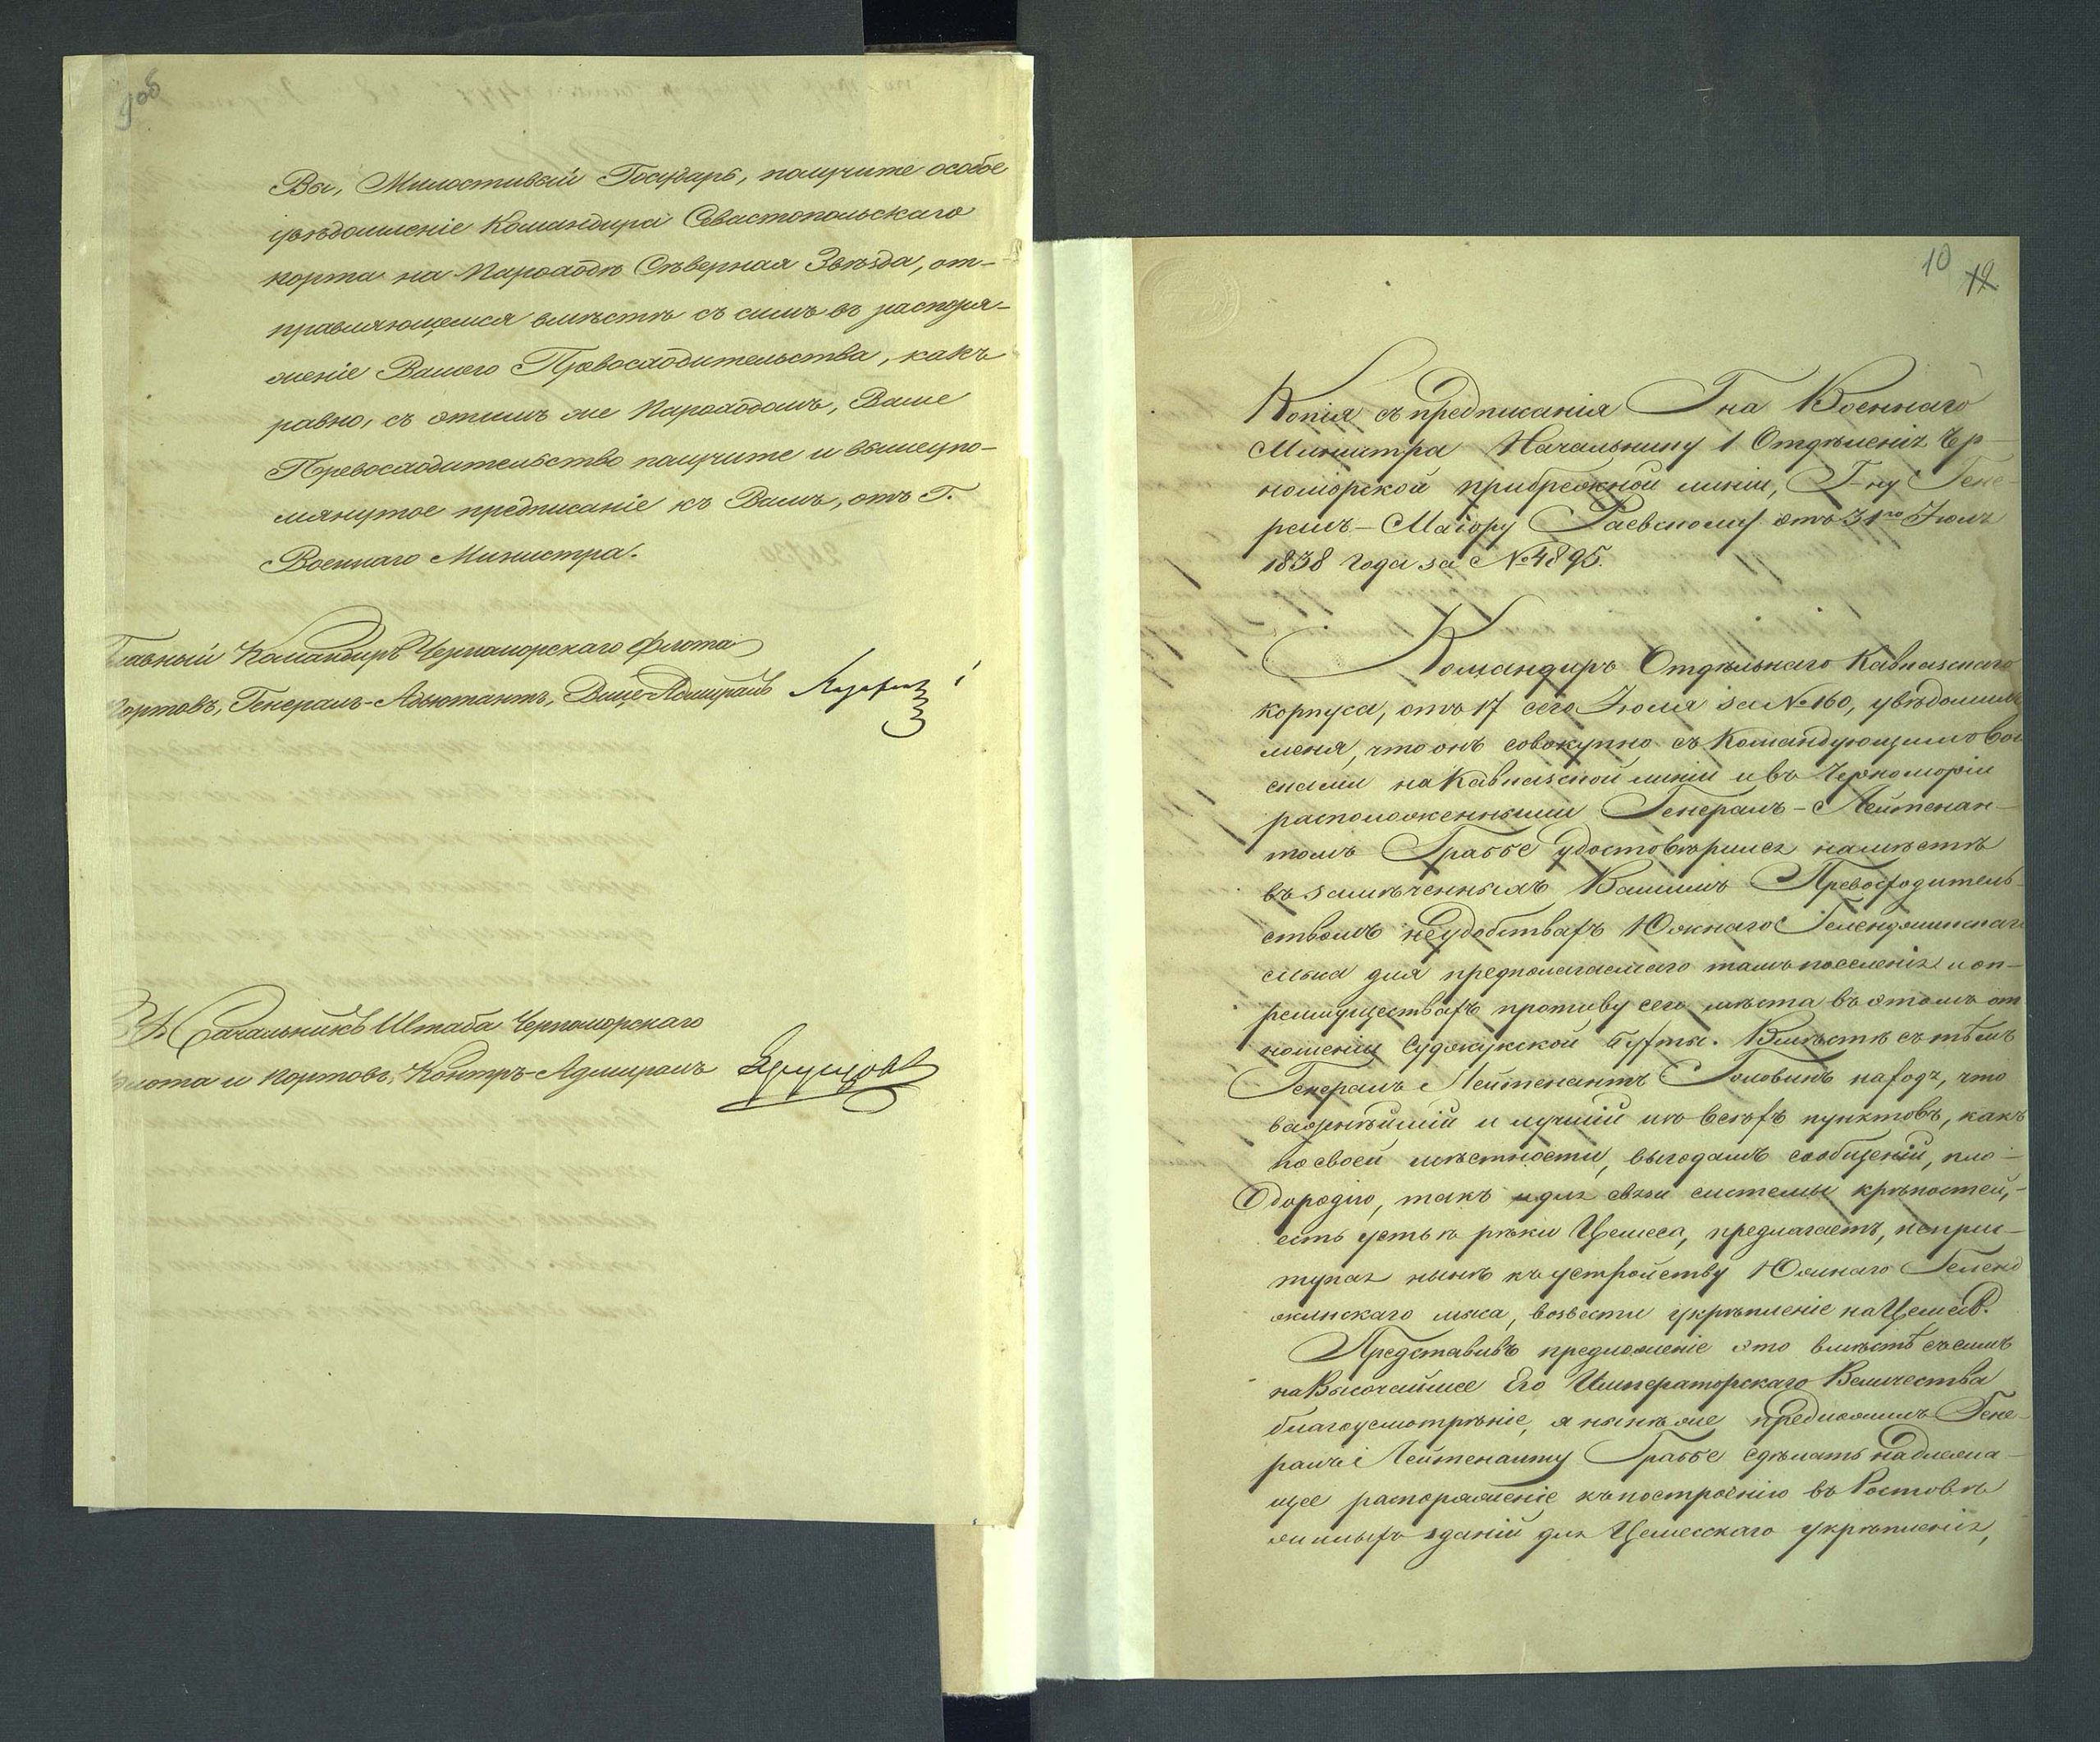 9об
Вы, Милостивый Государь, получите особое
увѣдомленіе Командира Севастопольскаго
порта на Пароходѣ Сѣверная Звѣзда, от-
правляющемся вмѣстѣ съ симъ въ распоря-
женіе Вашего Превосходительства, какъ
равно, съ этимъ же Пароходомъ, Ваше
Превосходительство получите и вышеупо-
мянутое предписаніе къ Вамъ, отъ Г.
Военнаго Министра.
Главный Командиръ Черноморскаго флота
портовъ, Генералъ-Адъютантъ, Вице-Адмиралъ Лазаревъ
Начальникъ Штаба Черноморскаго
флота и портовъ, Контръ-Адмиралъ
10 12
Копія съ предписанія Гна Военнаго
Министра Начальнику 1 Отдѣленія Чер-
номорской прибрежной линіи, Г-ну Гене-
ралъ-Маіору Раевскому отъ 31го Іюля
1838 года за №4895.
Командиръ Отдѣльнаго Кавказскаго
корпуса, отъ 17 сего Іюля за №160, увѣдомилъ
меня, что онъ совокупно съ Командующимъ вой
сками на Кавказской линіи и въ Черноморіи
расположенными Генералъ-Лейтенан-
томъ Граббе удостовѣрился на мѣстѣ
въ замѣченныхъ Вашимъ Превосходитель-
ствомъ неудобствахъ Южнаго Геленджикскаго
мыса для предполагаемаго тамъ поселенія и оп-
реимуществахъ противу сего мѣста въ этомъ от
ношеніи Суджукской бухты. Вмѣстѣ съ тѣмъ
Генералъ Лейтенантъ Головинъ находя, что
важнѣйшій и лучшій изъ всѣхъ пунктовъ, какъ
по своей мѣстности, выгодамъ сообщеній, пло-
дородію, такъ и для связи системы крѣпостей,-
есть устье рѣки Цемеса, предлагаетъ, неприс-
тупая нынѣ къ устройству Южнаго Гелендж
жикскаго мыса, возвести укрѣпленіе на Цемесѣ.
Представивъ предложеніе это вмѣстѣ съ симъ
на Высочайшее Его Императорскаго Величества
благоусмотрѣніе, я нынѣ же предписалъ Гене-
ралъ Лейтенанту Граббе сдѣлать надлежа-
щее распоряженіе къ построенію въ Ростовѣ
жилыхъ зданій для Цемесскаго укрѣпленія,